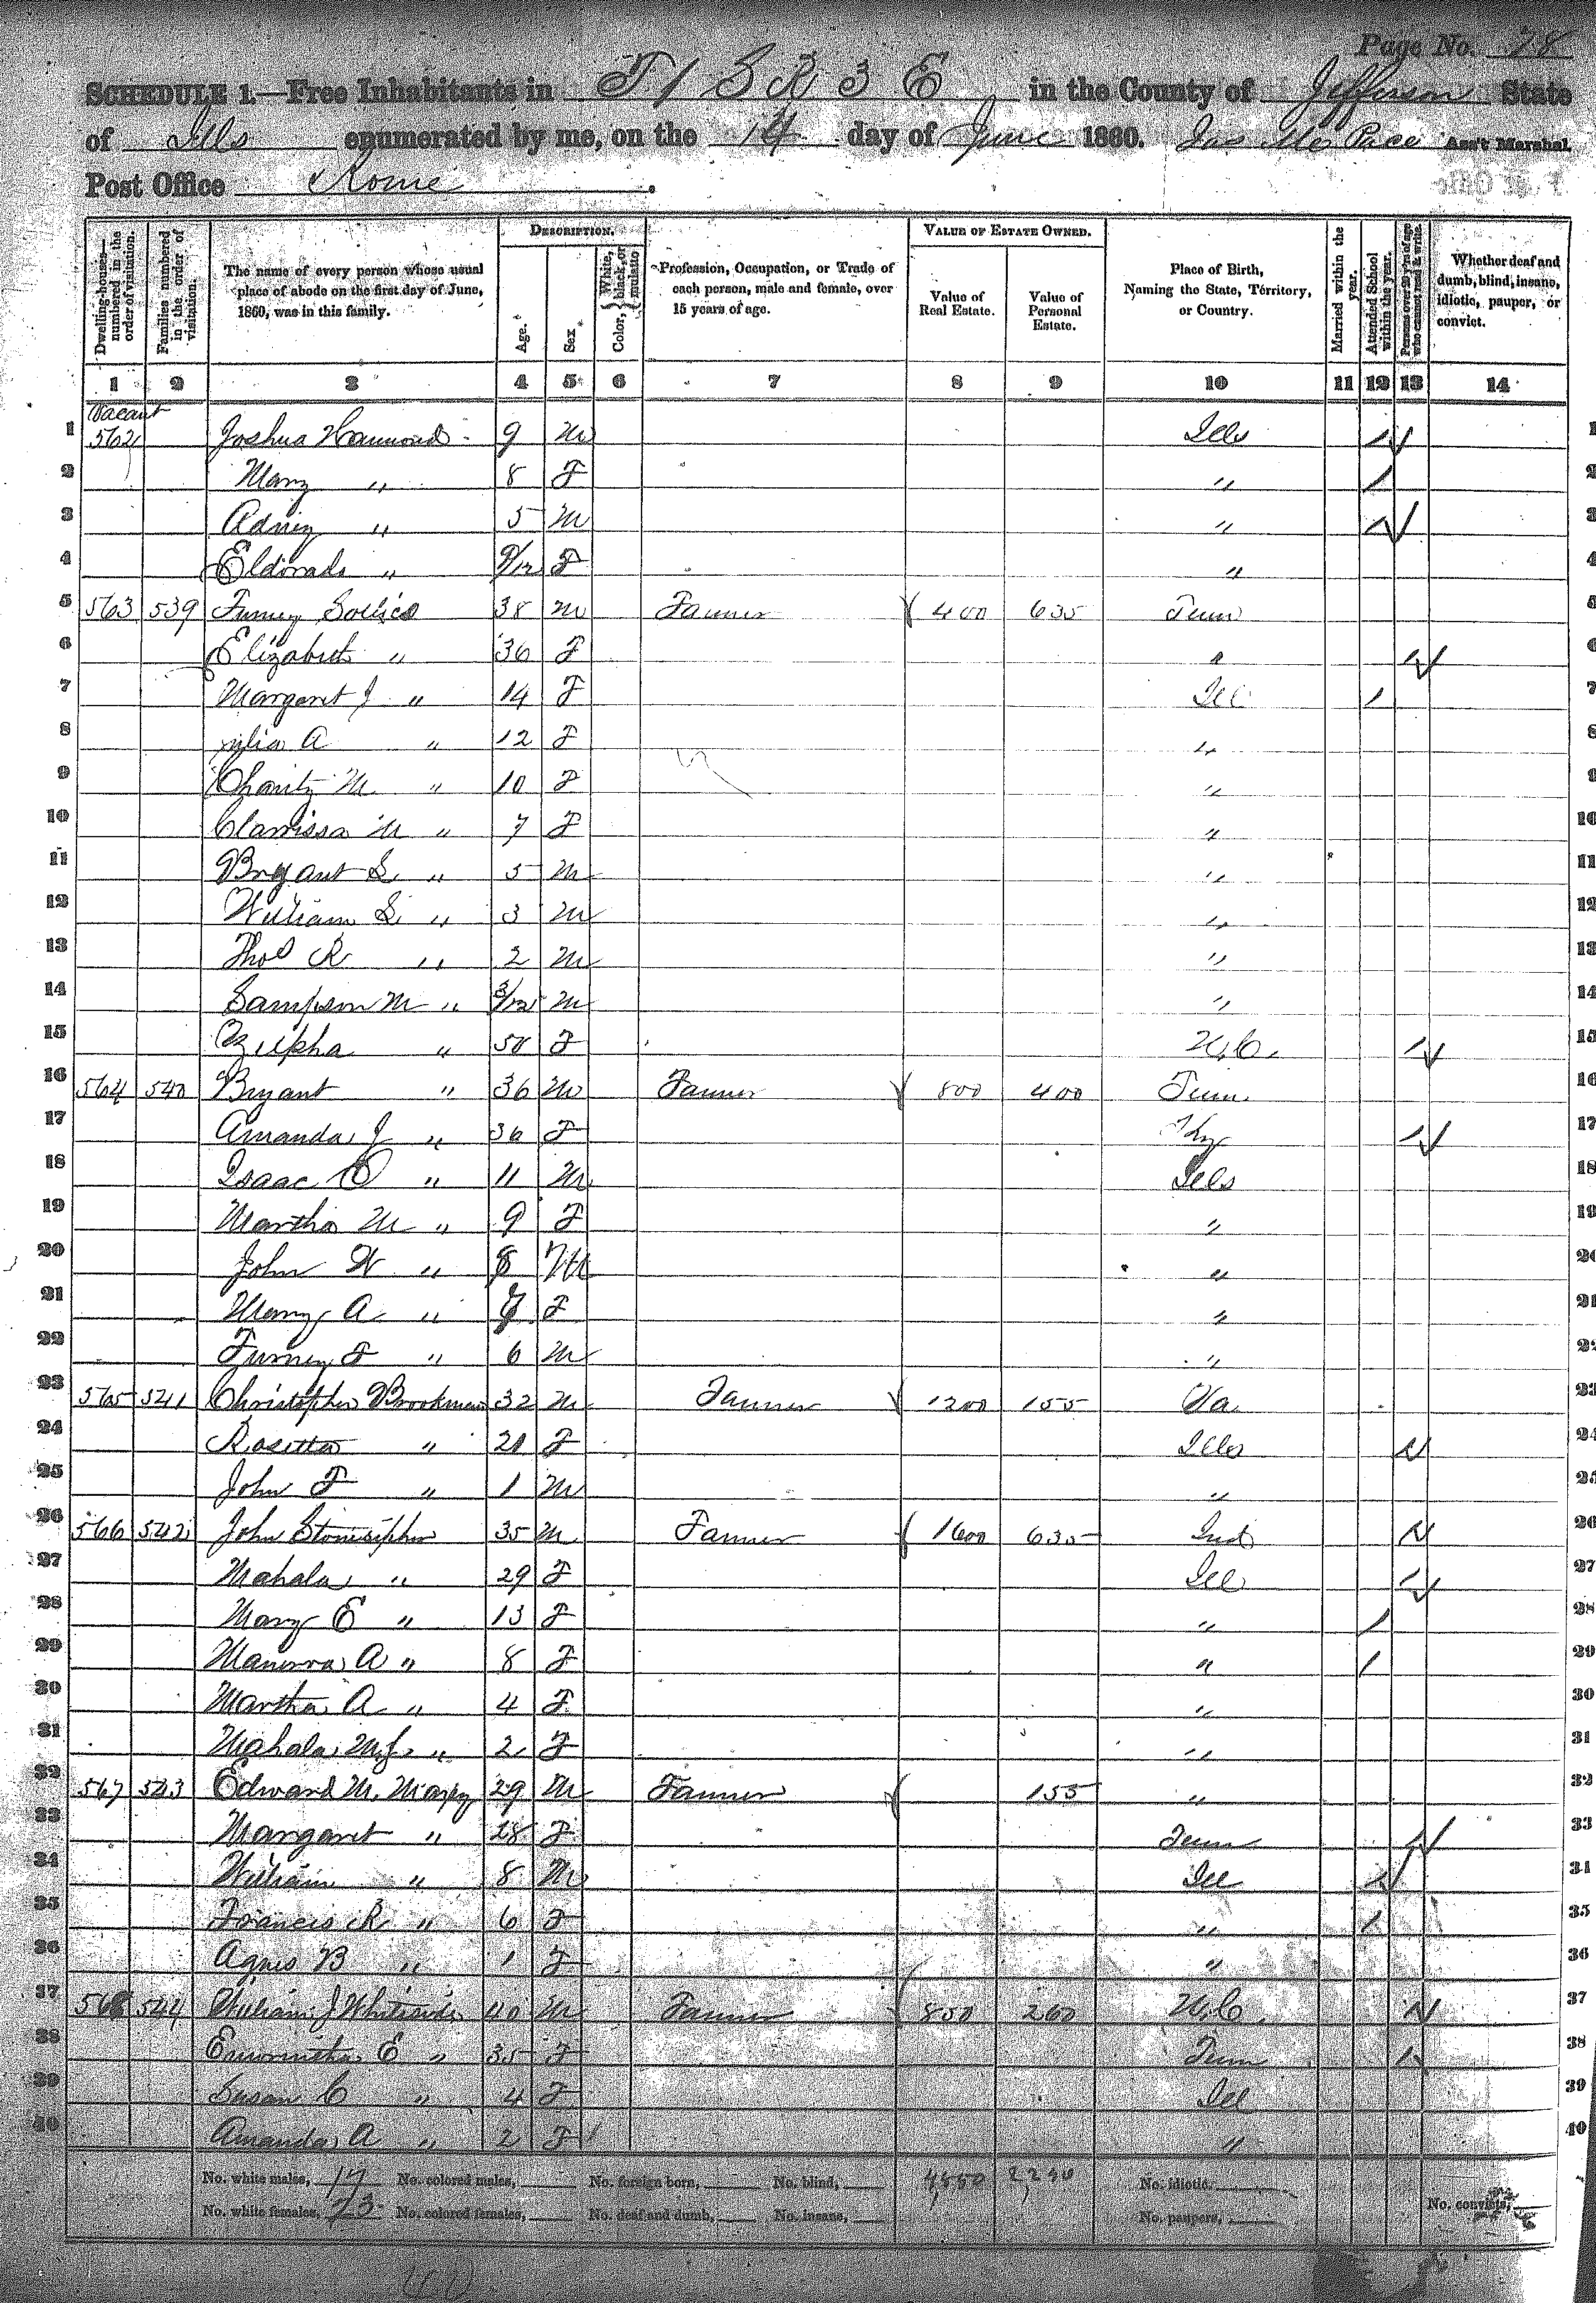 Page No. 78
SCHEDULE 1.—Free Inhabitants in T 1 S R 3 E in the County of Jefferson State
of Ills enumerated by me, on the 14 day of June 1860. Jas Pace Ass't Marshal.
Post Office Rome
Dwelling-houses—numbered in the order of visitation.
Families numbered in the order of visitation.
The name of every person whose usual place of abode on the first day of June, 1860, was in this family.
DESCRIPTION.
Age.
Sex
Color, White, black, or mulatto
Profession, Occupation, or Trade of each person, male and female, over 15 years of age.
VALUE OF ESTATE OWNED.
Value of Real Estate.
Value of Personal Estate.
Place of Birth, Naming the State, Territory, or Country.
Married within the year.
Attended School within the year.
Persons over 20 y'rs of age who cannot read & write.
Whether deaf and dumb, blind, insane, idiotic, pauper, or convict.
1 2 3 4 5 6 7 8 9 10 11 12 13 14
Vacant
1 562 Joshua Hammond 9 M Ills / 1
2 Mary " 8 F " / 2
3 " 5 M " / 3
4 Eldorado " 9/12 F " 4
5 563 539 Furney 38 M Farmer 400 635 Tenn 5
6 Elizabeth " 36 F " / 6
7 Margaret J " 14 F Ill / 7
8 Julia A " 12 F " 8
9 Charity M " 10 F " 9
10 Clarrissa M " 7 F " 10
11 Bryant S. " 5 M " 11
12 William S. " 3 M " 12
13 Thos R " 2 M " 13
14 Sampson M " 3/12 M " 14
15 Zilpha " 58 F N.C. / 15
16 564 540 Bryant " 36 M Farmer 800 400 Tenn 16
17 Amanda J " 36 F Ky / 17
18 Isaac " 11 M Ills 18
19 Martha M " 9 F " 19
20 John W " 8 M " 20
21 Mary A " 7 F " 21
22 Furney F " 6 M " 22
23 565 541 Christopher Brookman 32 M Farmer 1200 155 Va. 23
24 Rosetta " 21 F Ills / 24
25 John F " 1 M " 25
26 566 542 John Stonesipher 35 M Farmer 1600 635 Ind / 26
27 Mahala " 29 F Ill / 27
28 Mary E " 13 F " / 28
29 Manerva A " 8 F " / 29
30 Martha A " 4 F " 30
31 Mahala M.J. " 2 F " 31
32 567 543 Edward M. 29 M Farmer 155 " 32
33 Margaret " 28 F Tenn / 33
34 William " 8 M Ill / 34
35 Francis R " 6 F " / 35
36 Agnes B " 1 F " 36
37 568 544 William J Whiteside 40 M Farmer 850 260 N.C. / 37
38 E " 35 F Tenn / 38
39 Susan C " 4 F Ill 39
40 Amanda A " 2 F " 40
No. white males, 17 No. colored males, No. foreign born, No. blind, 4850 2240 No. idiotic.
No. white females, 23 No. colored females, No. deaf and dumb, No. insane, No. paupers, No. convicts,